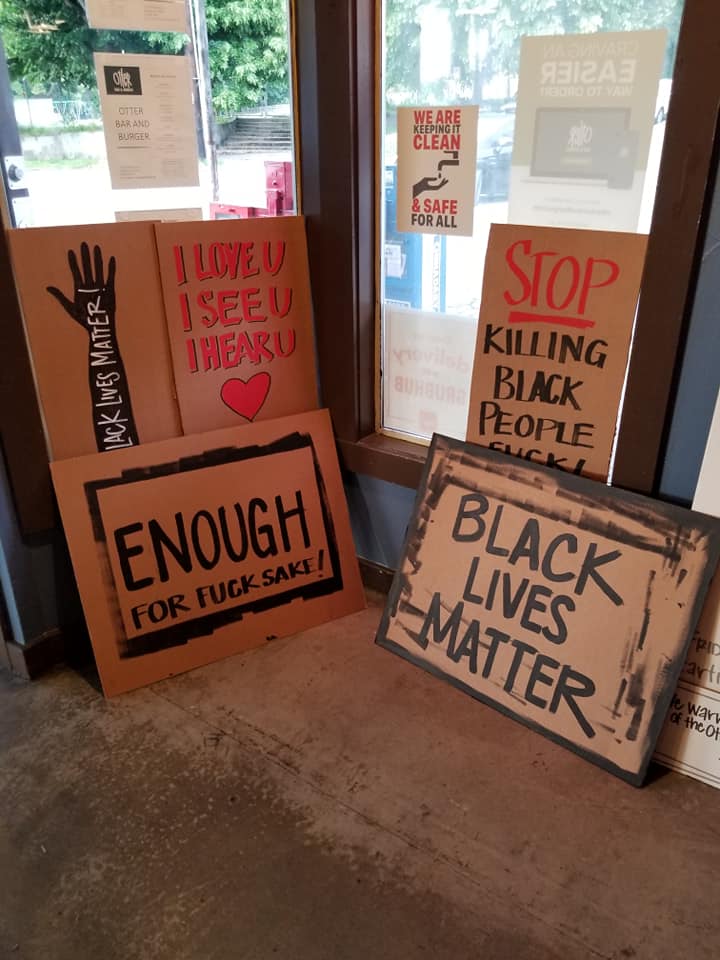 Otter
OTTER
BAR AND
BURGER
CRAVING AN
EASIER
WAY TO ORDER?
WE ARE
KEEPING IT
CLEAN
& SAFE
FOR ALL
delivery
GRUBHUB
LACK LIVES MATTER!
I LOVE U
I SEE U
I HEAR U
STOP
KILLING
BLACK
PEOPLE
ENOUGH
FOR FUCK SAKE!
BLACK
LIVES
MATTER
of the Ot